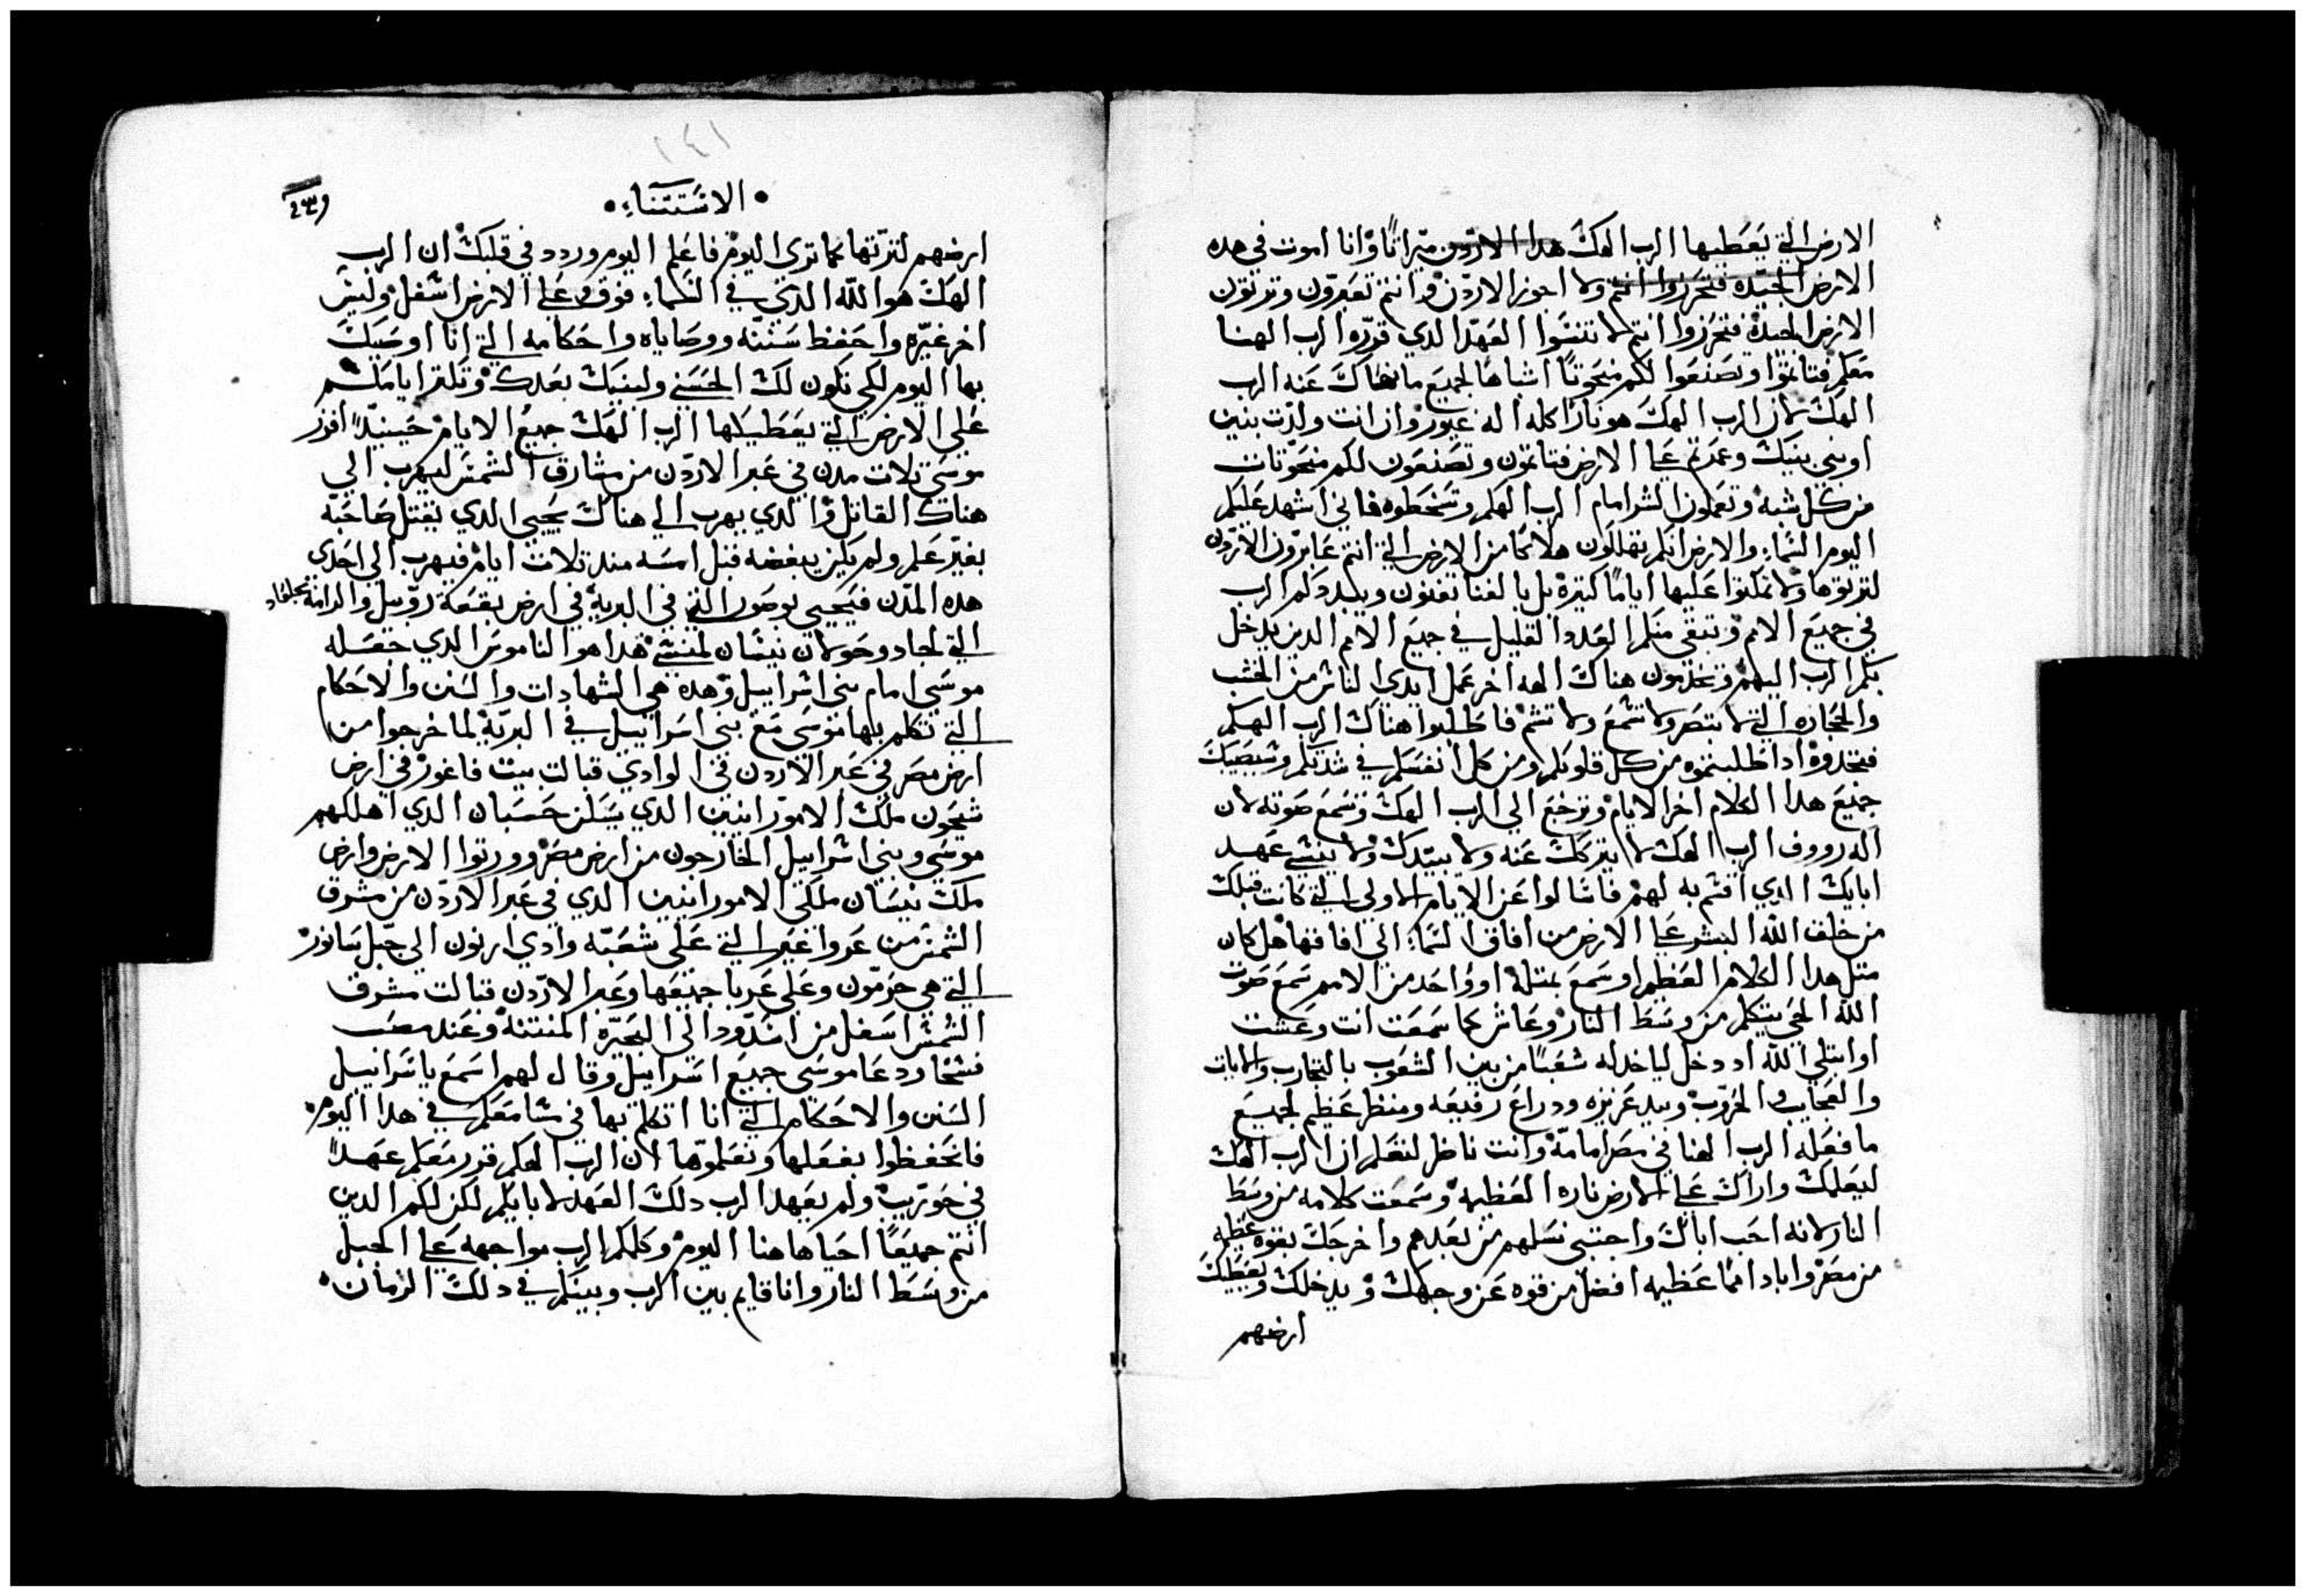 الارض التي يعطيها الرب الهك هدا الاردن ميراثا وانا اموت في هده
الارض الجيده فتحرزوا انتم ولا اجوز الاردن وانتم تعبرون وترتون
الارض الجيدة فتحرزوا انتم لا تنسوا العهد الدي قرره الرب الهنا
معكم فتاتموا وتصنعوا لكم منحوتا اشباها لجميع ما نهاك عنه الرب
الهك لان الرب الهك هو نارا اكله اله غيور وان انت ولدت بنين
اوبني بنيك وعمرتم على الارض فتاتمون وتصنعون لكم منحوتات
من كل شبه وتعملون الشر امام الرب الهكم وتسخطوه فاني اشهد عليكم
اليوم السماء والارض انكم تهلكون هلاكا من الارض التي انتم عابرون الاردن
لترتوها ولا تمكتوا عليها اياما كتيرة بل بالفنا تفنون ويبددكم الرب
في جميع الامم وتبقى منكم العدد القليل في جميع الامم الدين يدخل
بكم الرب اليهم وتخدمون هناك الهه اخر عمل ايدي الناس من الخشب
والحجاره التي لا تبصر ولا تسمع ولا تشم فاطلبوا هناك الرب الهكم
فتجدوه ادا طلبتموه من كل قلوبكم ومن كل انفسكم في شدتكم وسيصيبك
جميع هدا الكلام اخر الايام وترجع الي الرب الهك وتسمع صوته لان
اله رووف الرب الهك لا يتركك عنه ولا يبيدك ولا ينسي عهد
ابايك الدي اقسم به لهم فاسالوا عن الايام الاولي التي كانت قبلك
من خلف الله البشر على الارض من افاق السماء الي افاقها هل كان
متل هدا الكلام العظيم او سمع بمتله او واحد من الامم سمع صوت
الله الحي يتكلم من وسط النار وعاش كما سمعت انت وعشت
او ابتلي الله اد دخل لياخد له شعبا من بين الشعوب بالتجارب والايات
والعجايب والحروب وبيد عزيزه ودراع رفيعه ومنظر عظيم لجميع
ما فعله الرب الهنا في مصر امامه وانت ناظر لتعلم ان الرب الهك
ليعلمك واراك على الارض ناره العظيمه وسمعت كلامه من وسط
النار لانه احب اباك واجتبى نسلهم من بعدهم واخرجك بقوه عظيمه
من مصر واباد امما عظيمه افضل من قوه عن وجهك ويدخلك ويعطيك
ارضهم
١٤١
الاستتناء
ارضهم لترتها كما تري اليوم فاعلم اليوم وردد في قلبك ان الرب
الهك هو الله الدي في السماء فوق وعلى الارض اسفل وليس
اخر غيره واحفظ سننه ووصاياه واحكامه التي انا اوصيك
بها اليوم لكي تكون لك الحسني ولبنيك بعدك وتكتر ايامكم
على الارض التي يعطيكها الرب الهك جميع الايام حينيدا افرز
موسى تلات مدن في عبر الاردن من مشارق الشمس ليهرب الي
هناك القاتل والدي يهرب الي هناك يحيي الدي يقتل صاحبه
بغير علم ولم يكن يبغضه قبل امسه مند تلات ايام فيهرب الي احدي
هده المدن فيحيي بوصور التي في البرية في ارض بقعة روبيل والرامة بجلعاد
التي لجاد وحولان نيسان لمنسي هدا هو الناموس الدي جعله
موسى امام بني اسراييل وهده هي الشهادات والسنن والاحكام
التي تكلم بها موسى مع بني اسراييل في البرية لما خرجوا من
ارض مصر في عبر الاردن في الوادي قبالت بيت فاغور في ارض
سيحون ملك الامورانيين الدي يسكن حسبان الدي اهلكهم
موسى وبني اسراييل الخارجون من ارض مصر وورتوا الارض وارض
ملك نيسان ملكي الامورانيين الدي في عبر الاردن من مشرق
الشمس من عروا غير التي على شعبه وادي ارنون الي جبل سانور
التي هي حرمون وعلى عربا جميعها وعبر الاردن قبالت مشرق
الشمس اسفل من اسدود الي البحيره المنتنة وعند مصب
فسخا ودعا موسى جميع اسراييل وقال لهم اسمع ياسراييل
السنن والاحكام التي انا اتكلم بها في مسامعكم في هدا اليوم
فاتحفظوا بفعلها وتعلموها لان الرب الهكم قرر معكم عهدا
في حوريب ولم يعهد الرب دلك العهد لابايكم لكن لكم الدين
انتم جميعا احيا هاهنا اليوم وكلمكم الرب مواجهه على الجبل
من وسط النار وانا قايم بين الرب وبينكم في دلك الزمان